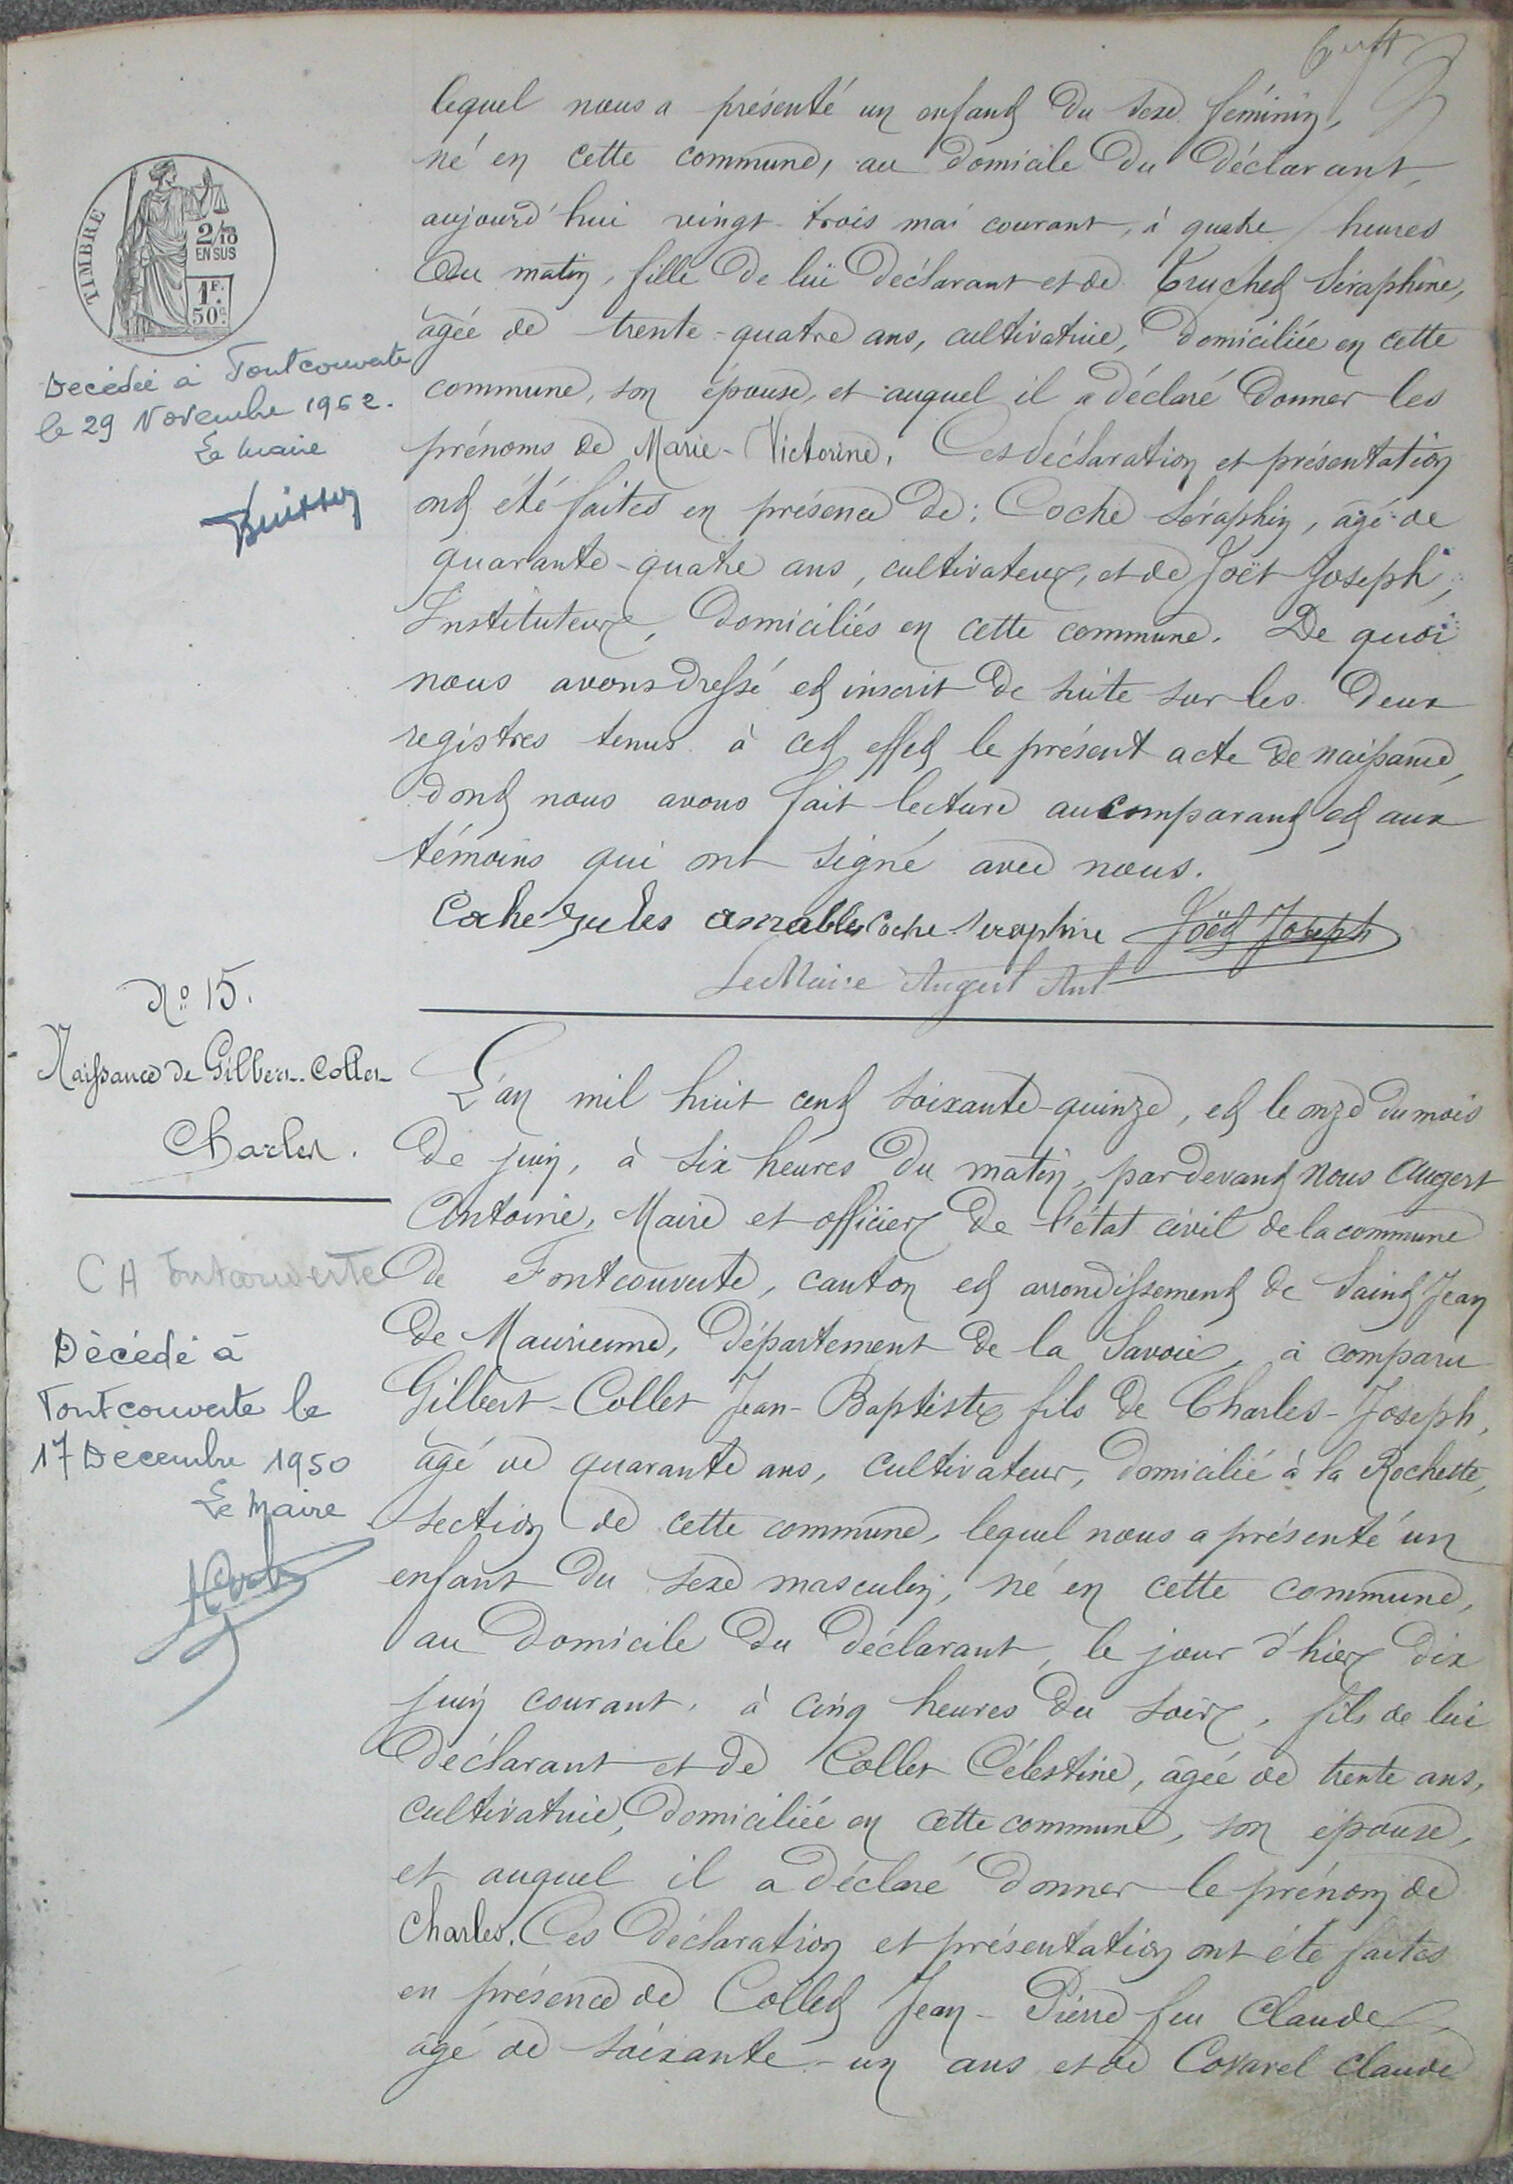 lequel nous a présenté un enfant du sexe féminin,
né en cette commune, au domicile du déclarant,
aujourd'hui vingt-trois mai courant, à quatre heures
du matin, fille de lui déclarant et de Truchet Séraphine,
âgée de trente-quatre ans, cultivatrice, domiciliée en cette
commune, son épouse, et auquel il a déclaré donner les
prénoms de Marie-Victorine. Ces déclaration et présentation
ont été faites en présence de : Coche Séraphin, âgé de
quarante-quatre ans, cultivateur, et de Joët Joseph,
Instituteur, domiciliés en cette commune. De quoi
nous avons dressé et inscrit de suite sur les deux
registres tenus à cet effet le présent acte de naissance,
dont nous avons fait lecture au comparant et aux
témoins qui ont signé avec nous.
Coche Jules amable Coche Seraphin Joët Joseph
Le Maire Augert Ant
TIMBRE
2/10
EN SUS
1F.
50c.
Decédée à Fontcouverte
le 29 Novembre 1962.
Le Maire
Buisson
No 15.
Naissance de Gilbert-Collet
Charles.
CA Fontcouverte
Décédé à
Fontcouverte le
17 Decembre 1950
Le Maire
L'an mil huit cent soixante-quinze, et le onze du mois
de juin, à six heures du matin, pardevant nous Augert
Antoine, Maire et officier de l'état civil de la commune
de Fontcouverte, canton et arrondissement de Saint Jean
de Maurienne, département de la Savoie, a comparu
Gilbert-Collet Jean-Baptiste fils de Charles-Joseph,
âgé de quarante ans, cultivateur, domicilié à la Rochette,
section de cette commune, lequel nous a présenté un
enfant du sexe masculin, né en cette commune,
au domicile du déclarant, le jour d'hier dix
juin courant, à cinq heures du soir, fils de lui
déclarant et de Collet Célestine, âgée de trente ans,
cultivatrice, domiciliée en cette commune, son épouse,
et auquel il a déclaré donner le prénom de
Charles. Ces déclaration et présentation ont été faites
en présence de Collet Jean-Pierre feu Claude,
âgé de soixante-un ans et de Covarel Claude